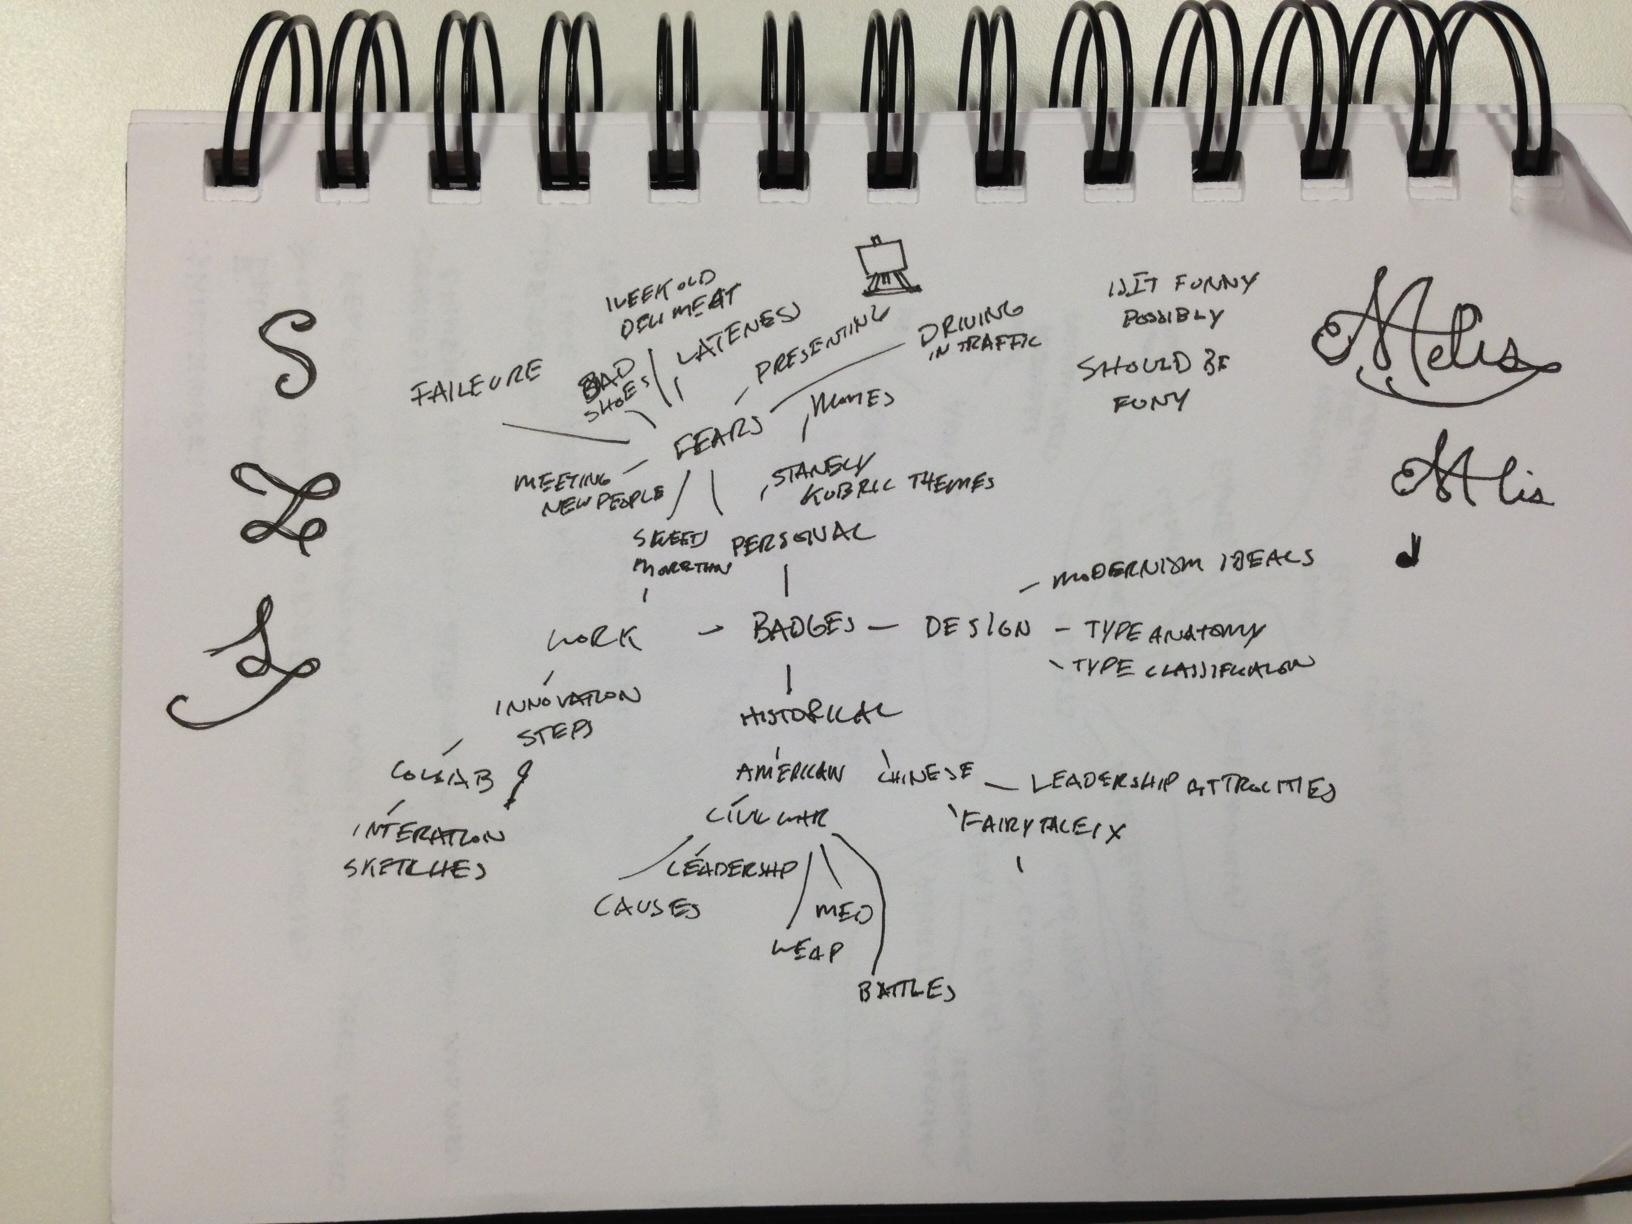 WEEK OLD
DELI MEAT
LATENESS
PRESENTING
DRIVING
IN TRAFFIC
ISIT FUNNY
POSSIBLY
SHOULD BE
FUNY
S
FAILEURE
BAD
SHOES
FEARS
MOVIES
Melis
MEETING
NEW PEOPLE
STANELY
KUBRIC THEMES
Mlis
PERSONAL
MODERNISM IDEALS
WORK
BADGES
DESIGN
TYPE ANATOMY
TYPE CLASSIFICATION
INNOVATION
STEPS
HISTORICAL
COLLAB
AMERICAN
CHINESE
LEADERSHIP ATTROCITIES
CIVIL WAR
FAIRYTALE
INTERATION
SKETCHES
LEADERSHIP
CAUSES
MED
WEAP
BATTLES